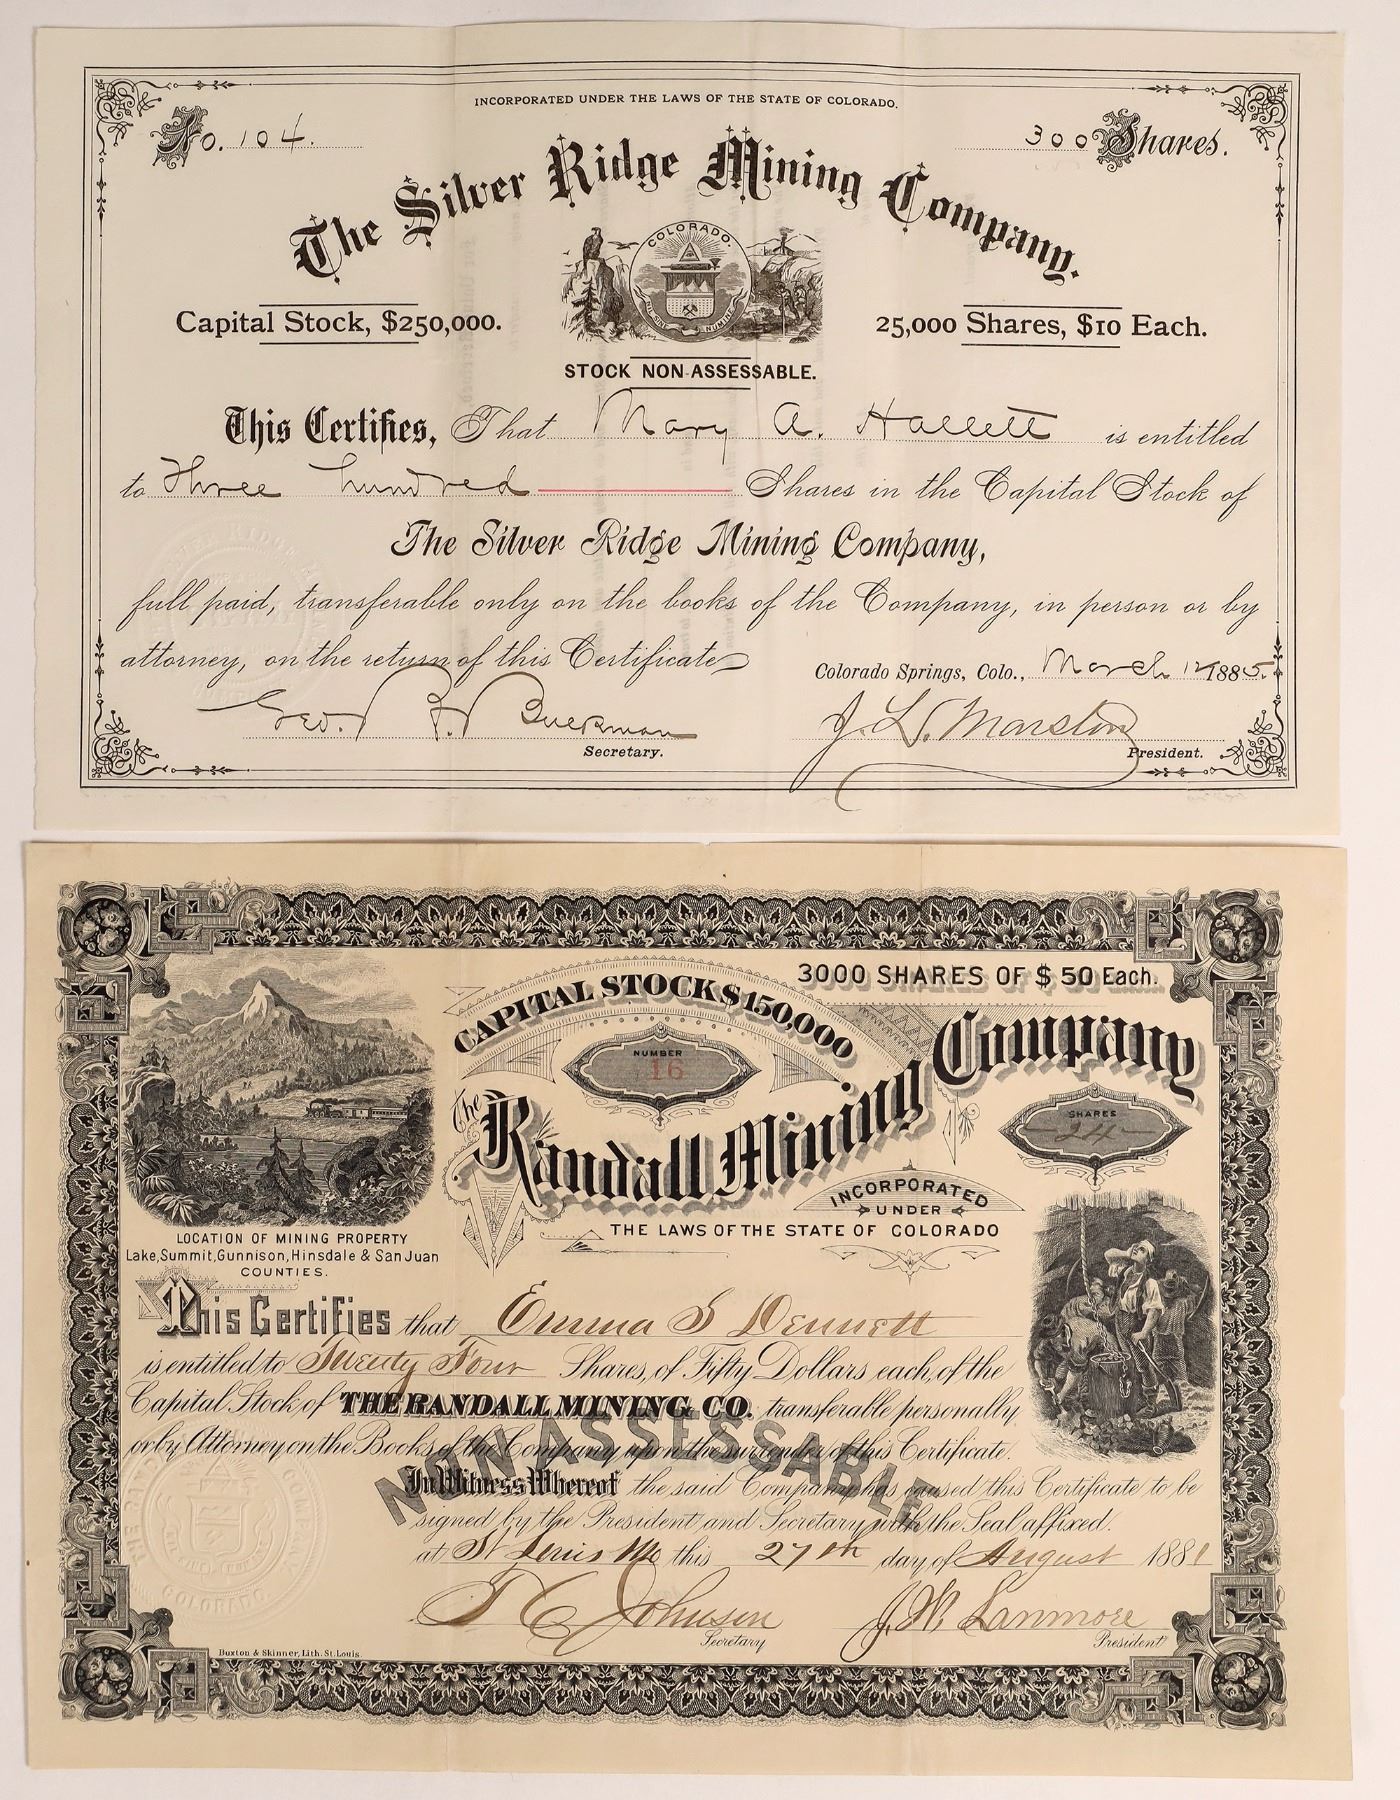 INCORPORATED UNDER THE LAWS OF THE STATE OF COLORADO.
No. 104.
300 Shares.
The Silver Ridge Mining Company.
COLORADO.
NIL SINE NUMINE
Capital Stock, $250,000.
25,000 Shares, $10 Each.
STOCK NON-ASSESSABLE.
This Certifies, That Mary A. Hallett is entitled
to Three hundred Shares in the Capital Stock of
The Silver Ridge Mining Company,
full paid, transferable only on the books of the Company, in person or by
attorney, on the return of this Certificate
Colorado Springs, Colo., March 12 1885.
Geo. H. Buckman
Secretary.
J. L. Marston
President.
3000 SHARES OF $50 Each.
CAPITAL STOCK $150,000
NUMBER
16
The Randall Mining Company
SHARES
24
INCORPORATED
UNDER
THE LAWS OF THE STATE OF COLORADO
LOCATION OF MINING PROPERTY
Lake, Summit, Gunnison, Hinsdale & San Juan
COUNTIES.
This Certifies that Emma S Dennett
is entitled to Twenty Four Shares, of Fifty Dollars each, of the
Capital Stock of THE RANDALL MINING CO. transferable personally
or by Attorney on the Books of the Company upon the surrender of this Certificate.
NON ASSESSABLE
In Witness Whereof the said Company has caused this Certificate to be
signed by the President and Secretary with the Seal affixed.
at St Louis Mo this 27th day of August 1881
T C Johnson
Secretary
J. W. Lanmore
President
COLORADO
Buxton & Skinner, Lith. St. Louis.